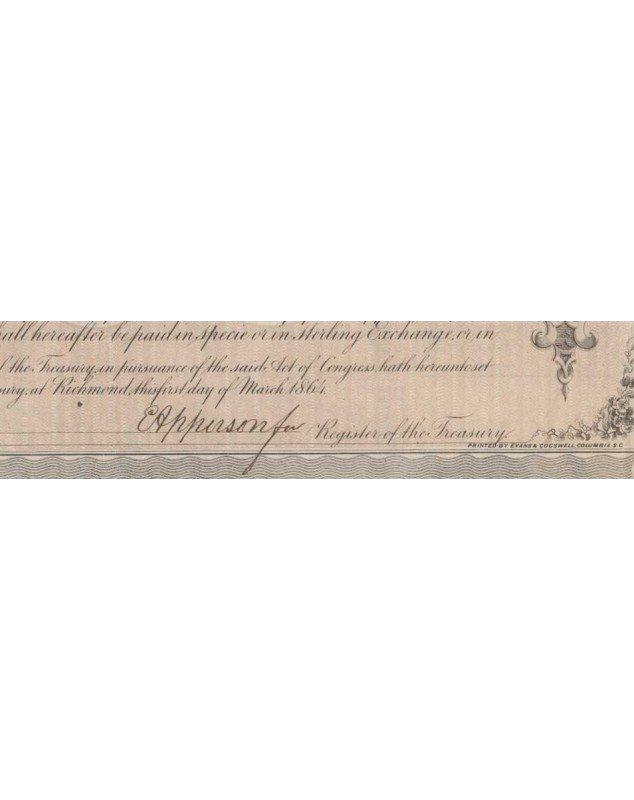 hall hereafter be paid in specie or in sterling Exchange, or in
the Treasury, in pursuance of the said Act of Congress, hath hereunto set
ury, at Richmond, this first day of March 1864.
EApperson for Register of the Treasury.
PRINTED BY EVANS & COGSWELL COLUMBIA, S.C.